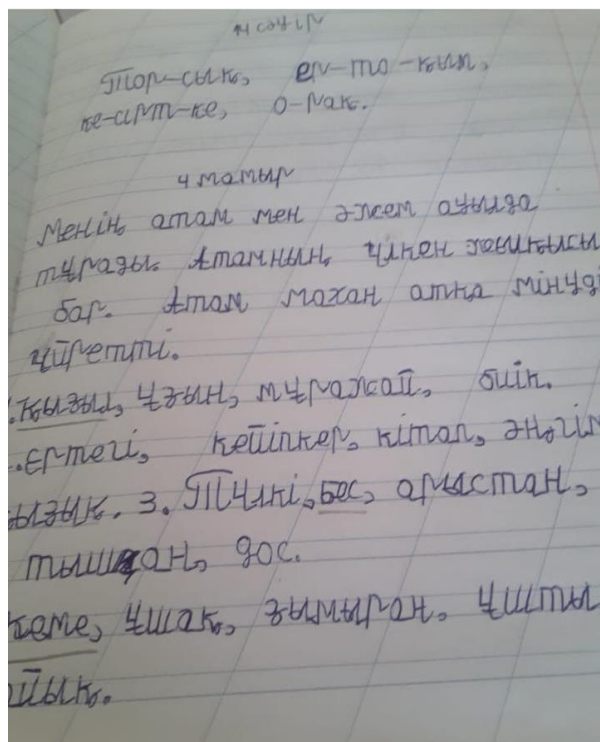 14 сәуір
Тор-сық, ер-то-қым,
ке-серт-ке, о-рақ.
4 мамыр
Менің атам мен әжем ауылда
тұрады. Атамның үлкен жылқысы
бар. Атам маған атқа мінуді
үйретті.
қызыл, ұзын, мұражай, биік.
Ертегі, кейіпкер, кітап, әңгім
ызық. 3. Түлкі, бес, арыстан,
тышқан, дос.
кеме, ұшақ, зымыран, ұшты
йық.